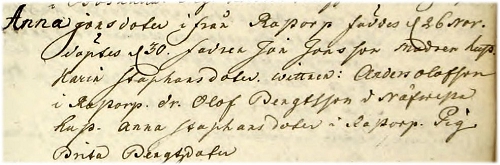 Anna Jonsdoter i från Rastorp föddes d 26 Nov.
döptes d 30. fadren Jon Jonsson modren hust.
Karin Staphansdoter. wittnen: Anders Olofson
i Rastorp. dr. Olof Bengtsson i
hust. Anna Staphansdoter i Rastorp. Pig
Brita Bengtsdoter